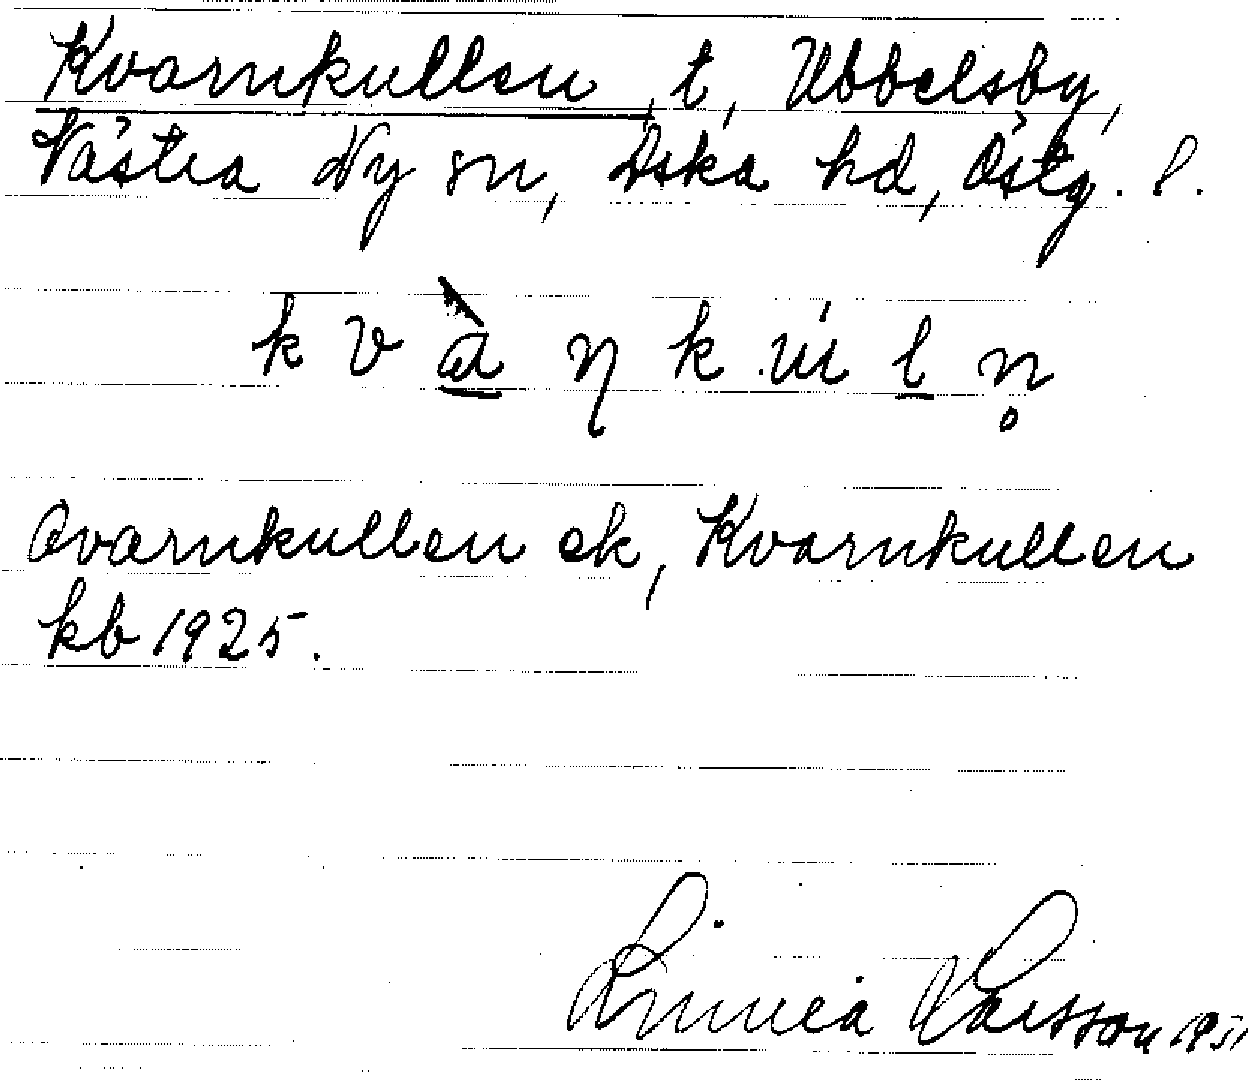 Kvarnkullen, t, Ubbelsby,
Västra Ny sn, Aska hd, Östg. l.
k v à̱ ŋ k ú l̠ n̥
Qvarnkullen ek, Kvarnkullen
kb 1925.
Linnéa Larsson 1951